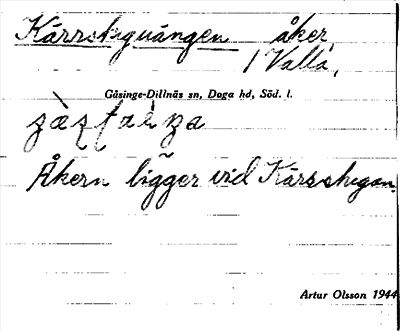 Kärrstuguängen åker,
/ Valla,
Gåsinge-Dillnäs sn, Daga hd, Söd. l.
Åkern ligger vid Kärrstugan.
Artur Olsson 1944